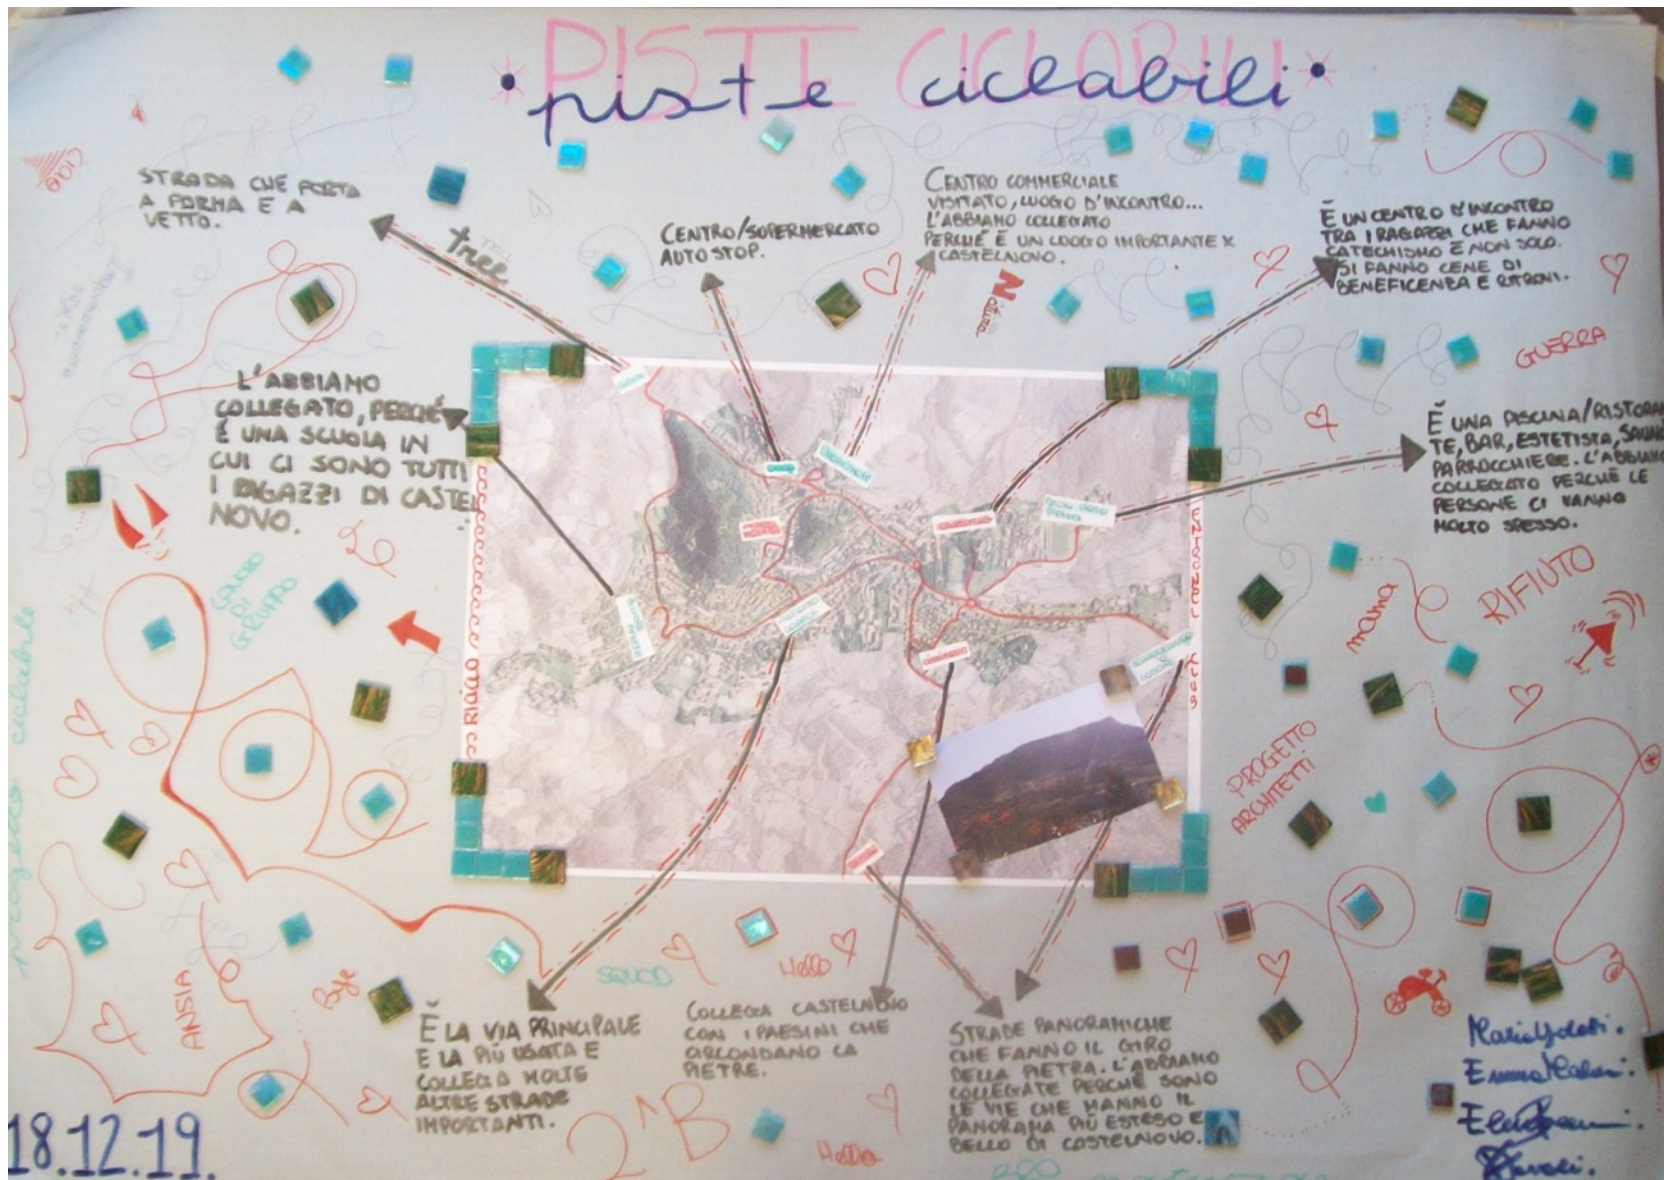 PISTE CICLABILI
piste ciclabili
CIAO
STRADA CHE PORTA
A PARMA E A
VETTO.
tree
CENTRO/SUPERMERCATO
AUTO STOP.
CENTRO COMMERCIALE
VISITATO, LUOGO D'INCONTRO...
L'ABBIAMO COLLEGATO
PERCHÉ È UN LUOGO IMPORTANTE X
CASTELNOVO.
È UN CENTRO D'INCONTRO
TRA I RAGAZZI CHE FANNO
CATECHISMO E NON SOLO.
SI FANNO CENE DI
BENEFICENZA E RITROVI.
Natura
GUERRA
L'ABBIAMO
COLLEGATO, PERCHÉ
È UNA SCUOLA IN
CUI CI SONO TUTTI
I RAGAZZI DI CASTEL
NOVO.
È UNA PISCINA/RISTORAN
TE, BAR, ESTETISTA, SAUNA
PARROCCHIERE. L'ABBIAMO
COLLEGATO PERCHÉ LE
PERSONE CI VANNO
MOLTO SPESSO.
coop
LAVORO
DI
GRUPPO
mama
RIFIUTO
PROGETTO
ARCHITETTI
progetto ciclabile
ANSIA
Bye
SQUAD
Hello
È LA VIA PRINCIPALE
E LA PIÙ USATA E
COLLEGA MOLTE
ALTRE STRADE
IMPORTANTI.
COLLEGA CASTELNOVO
CON I PAESINI CHE
CIRCONDANO LA
PIETRE.
STRADE PANORAMICHE
CHE FANNO IL GIRO
DELLA PIETRA. L'ABBIAMO
COLLEGATE PERCHÉ SONO
LE VIE CHE HANNO IL
PANORAMA PIÙ ESTESO E
BELLO DI CASTELNOVO.
2^B
Hello
18.12.19.